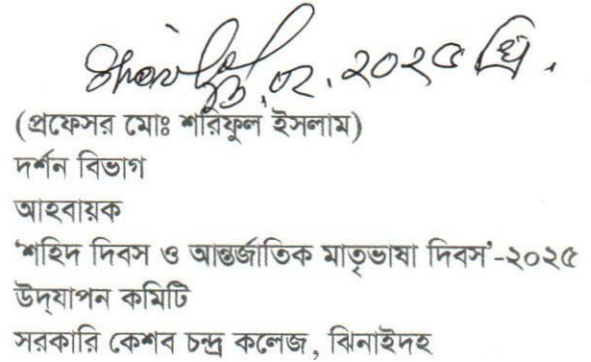 ০২.২০২৫ খ্রি.
(প্রফেসর মোঃ শরিফুল ইসলাম)
দর্শন বিভাগ
আহবায়ক
‘শহিদ দিবস ও আন্তর্জাতিক মাতৃভাষা দিবস’-২০২৫
উদ্‌যাপন কমিটি
সরকারি কেশব চন্দ্র কলেজ, ঝিনাইদহ